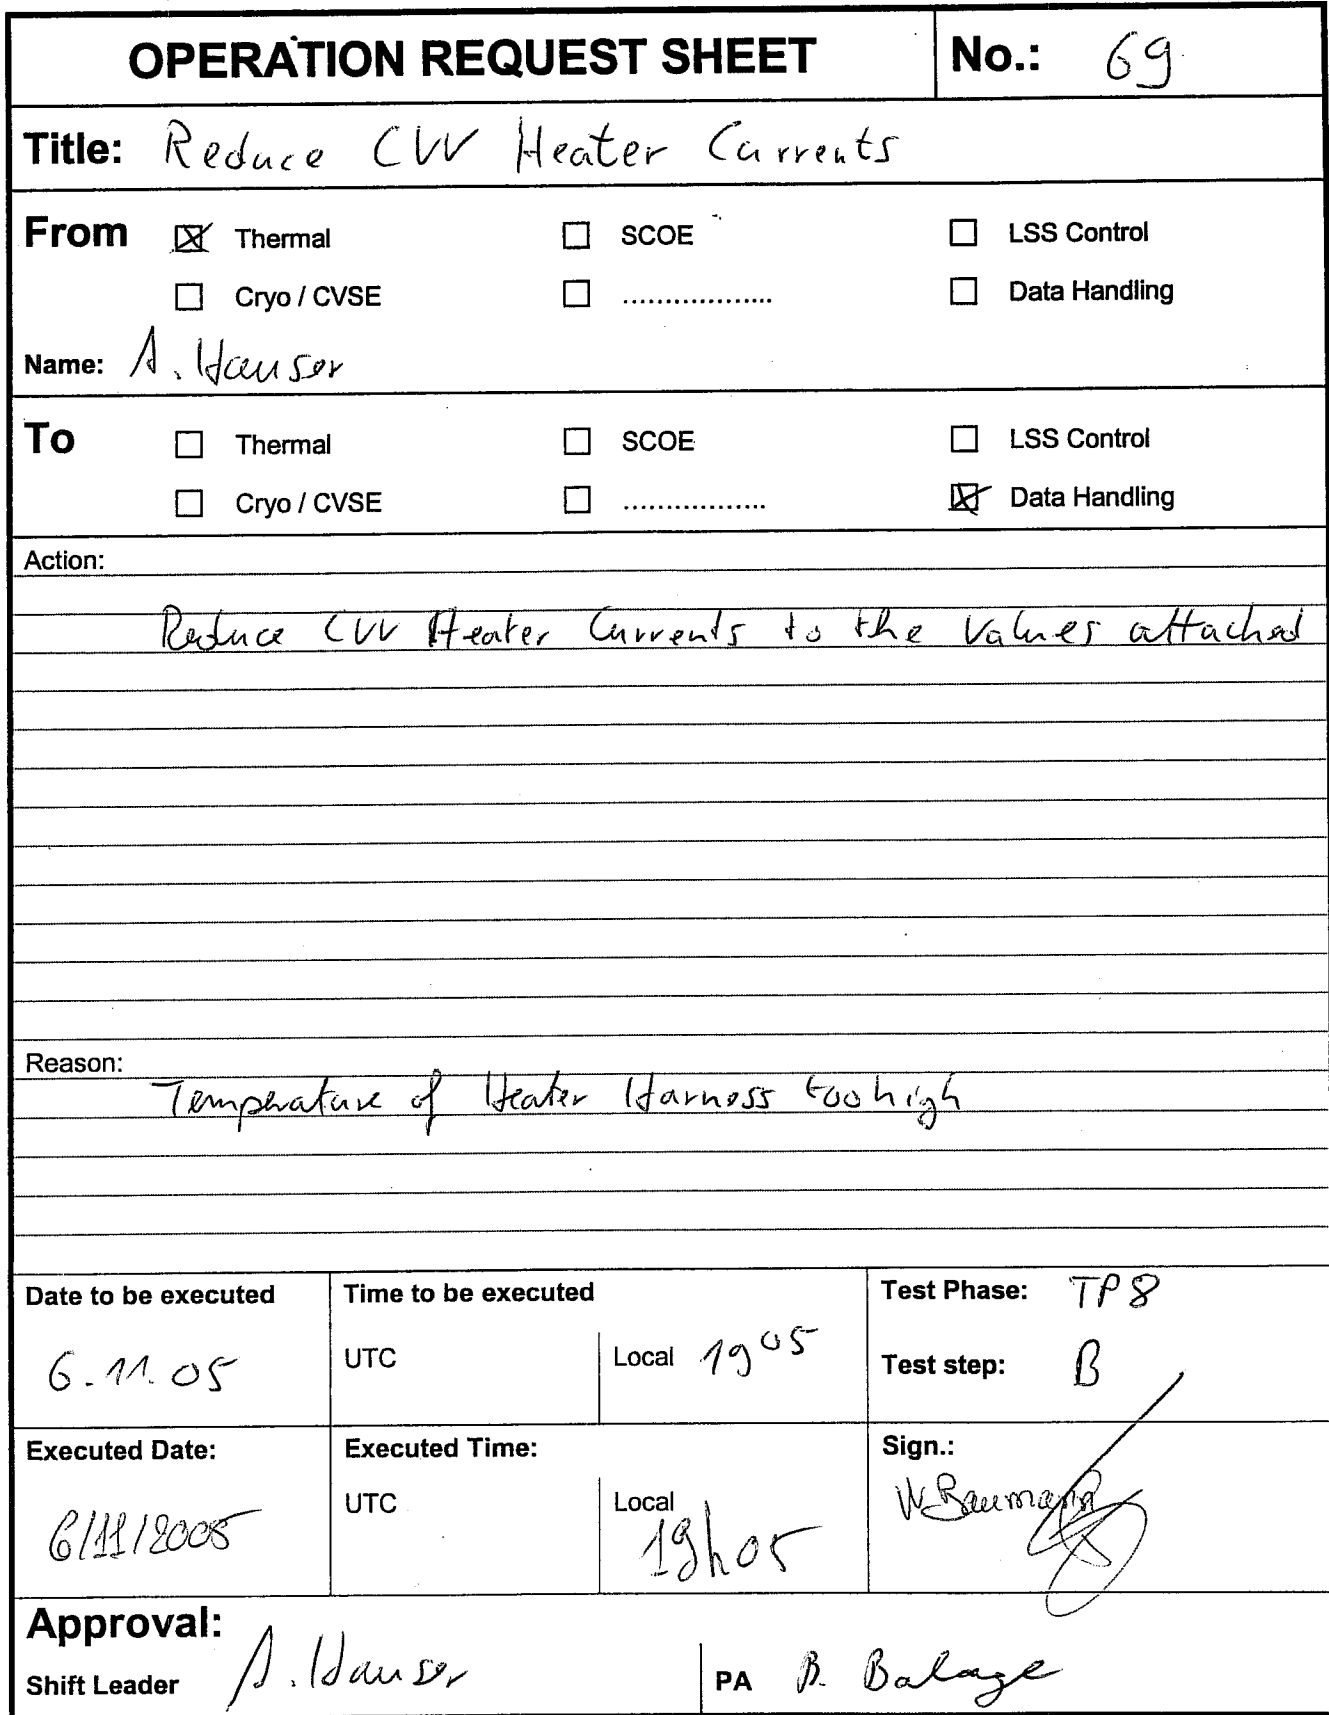 OPERATION REQUEST SHEET No.: 69
Title: Reduce CVV Heater Currents
From ☒ Thermal ☐ SCOE ☐ LSS Control
☐ Cryo / CVSE ☐ .................. ☐ Data Handling
Name: A. Hauser
To ☐ Thermal ☐ SCOE ☐ LSS Control
☐ Cryo / CVSE ☐ ................. ☒ Data Handling
Action:
Reduce CVV Heater Currents to the Values attached
Reason:
Temperature of Heater Harness too high
Date to be executed Time to be executed Test Phase: TP8
6.11.05 UTC Local 19 05 Test step: B
Executed Date: Executed Time: Sign.:
6/11/2005 UTC Local 19h05 W. Baumann
Approval:
Shift Leader A. Hauser PA B. Balage